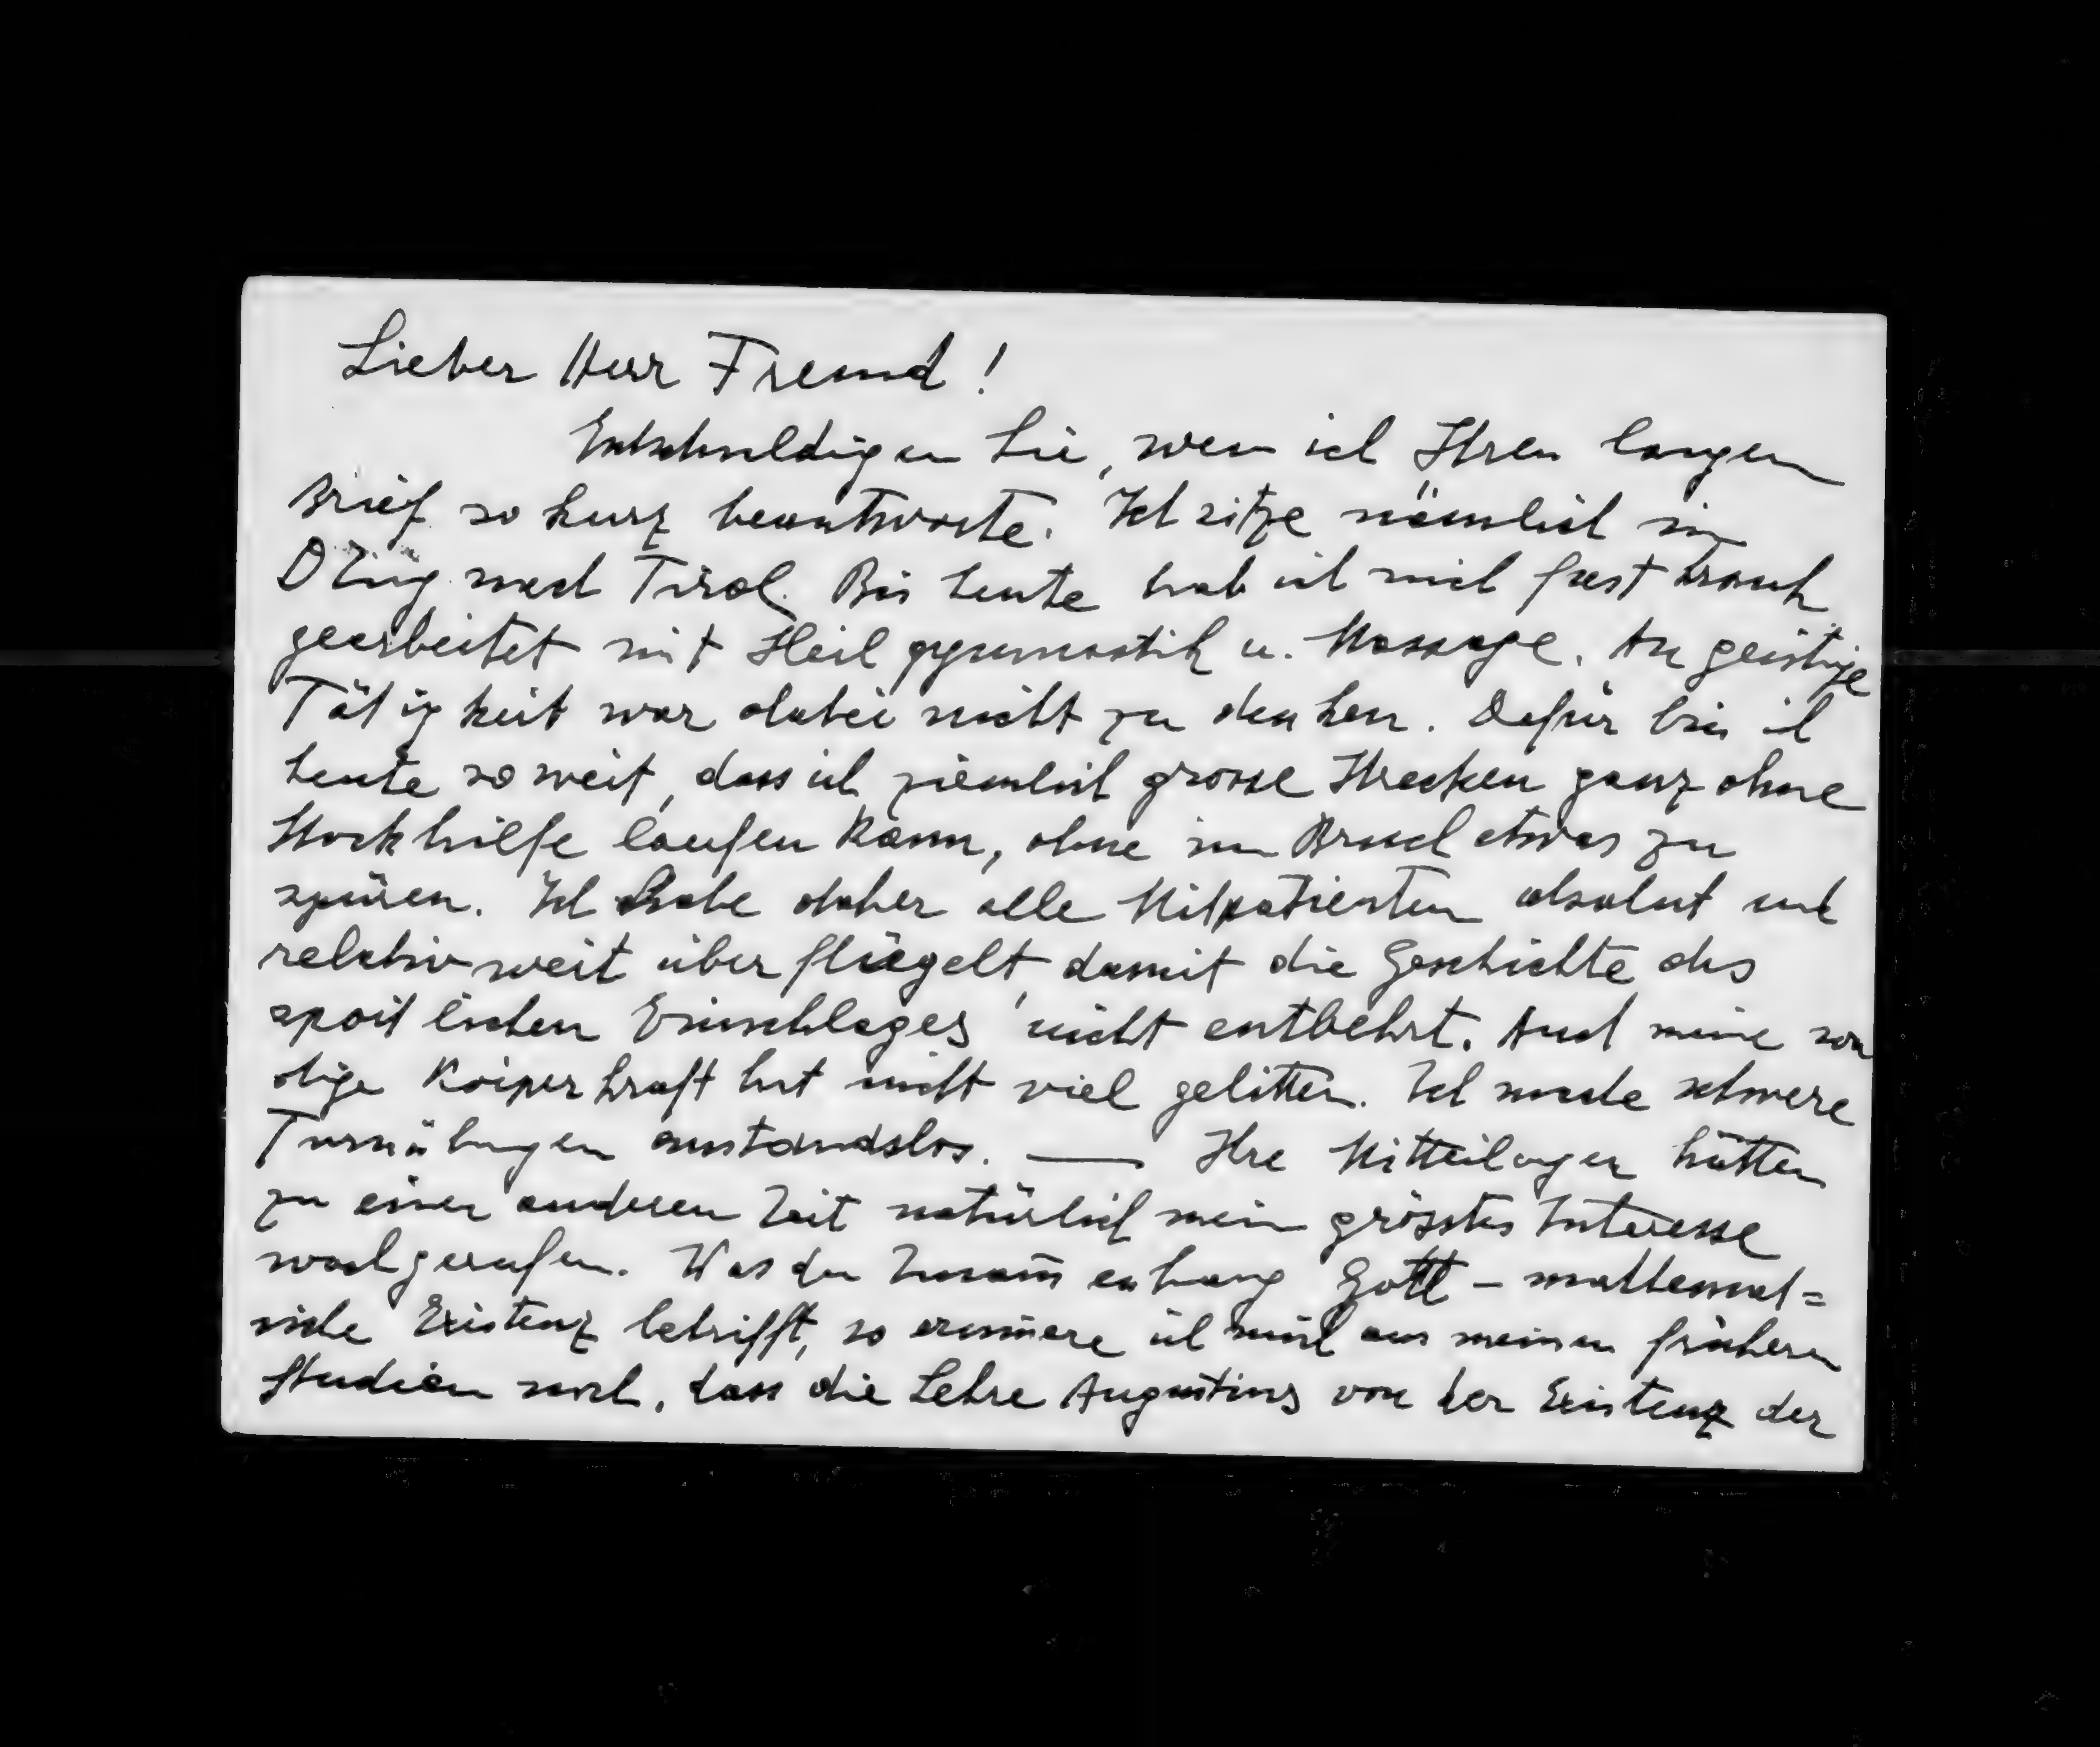 Lieber Herr Freund!
Entschuldigen Sie, wenn ich Ihren langen
Brief so kurz beantworte. Ich sitze nämlich im
D Zug nach Tirol. Bis heute hab ich mich fast krank
gearbeitet mit Heilgymnastik u. Massage. An geistige
Tätigkeit war dabei nicht zu denken. Dafür bin ich
heute soweit, dass ich ziemlich grosse Strecken ganz ohne
Stockhilfe laufen kann, ohne im Bruch etwas zu
spüren. Ich habe daher alle Mitpatienten absolut und
relativ weit überflügelt, damit die Geschichte des
sportlichen Einschlages nicht entbehrt. Auch meine son
stige Körperkraft hat nicht viel gelitten. Ich mache schwere
Turnübungen anstandslos. — Ihre Mitteilungen hätten
zu einer anderen Zeit natürlich mein grösstes Interesse
wachgerufen. Was den Zusam̄enhang Gott – mathemat=
ische Existenz betrifft, so erinnere ich mich aus meinen früheren
Studien noch, dass die Lehre Augustins von der Existenz der